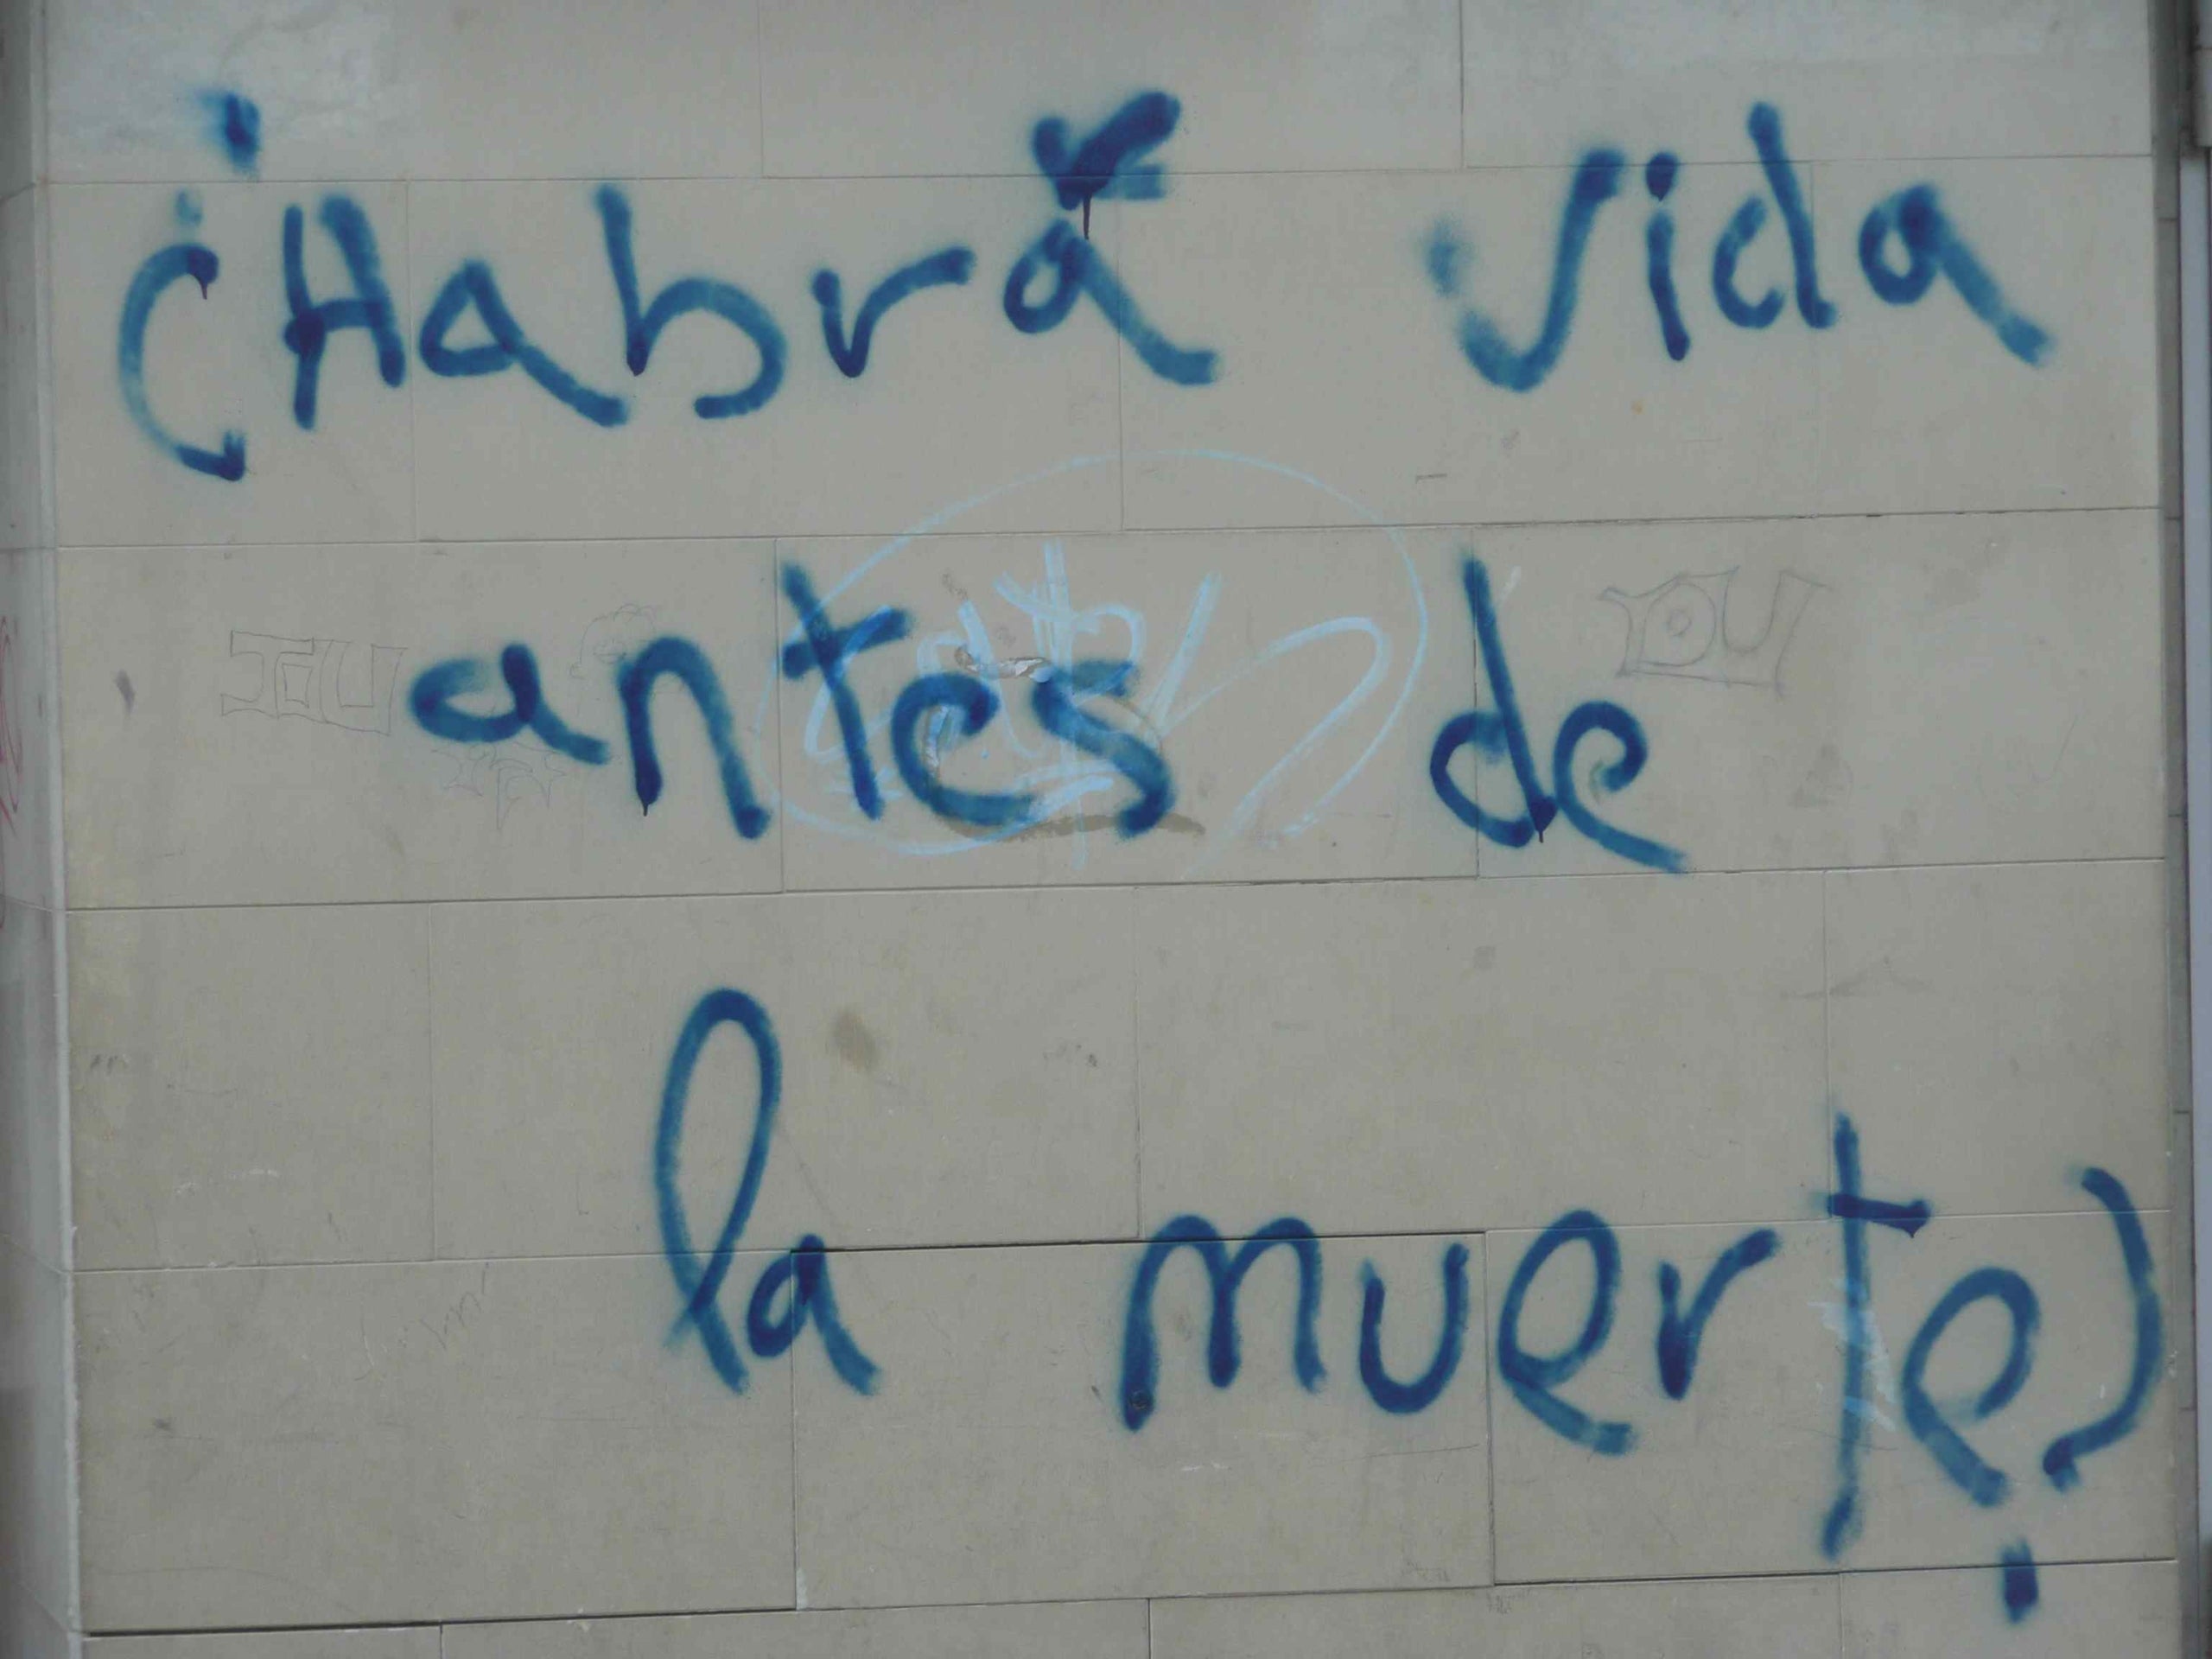 ¿Habrá vida
antes de
la muerte?